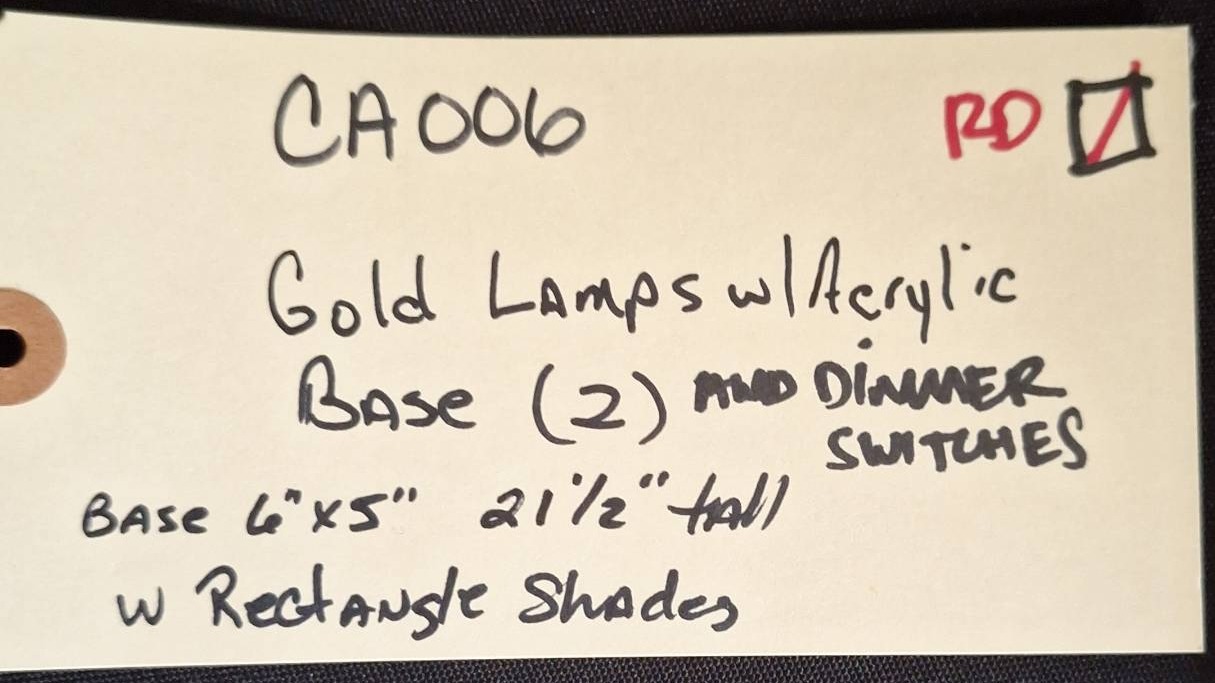 CA006 RD
Gold Lamps w/Acrylic
Base (2) AND DIMMER
SWITCHES
BASE 6"x5" 21 1/2" tall
w Rectangle Shades